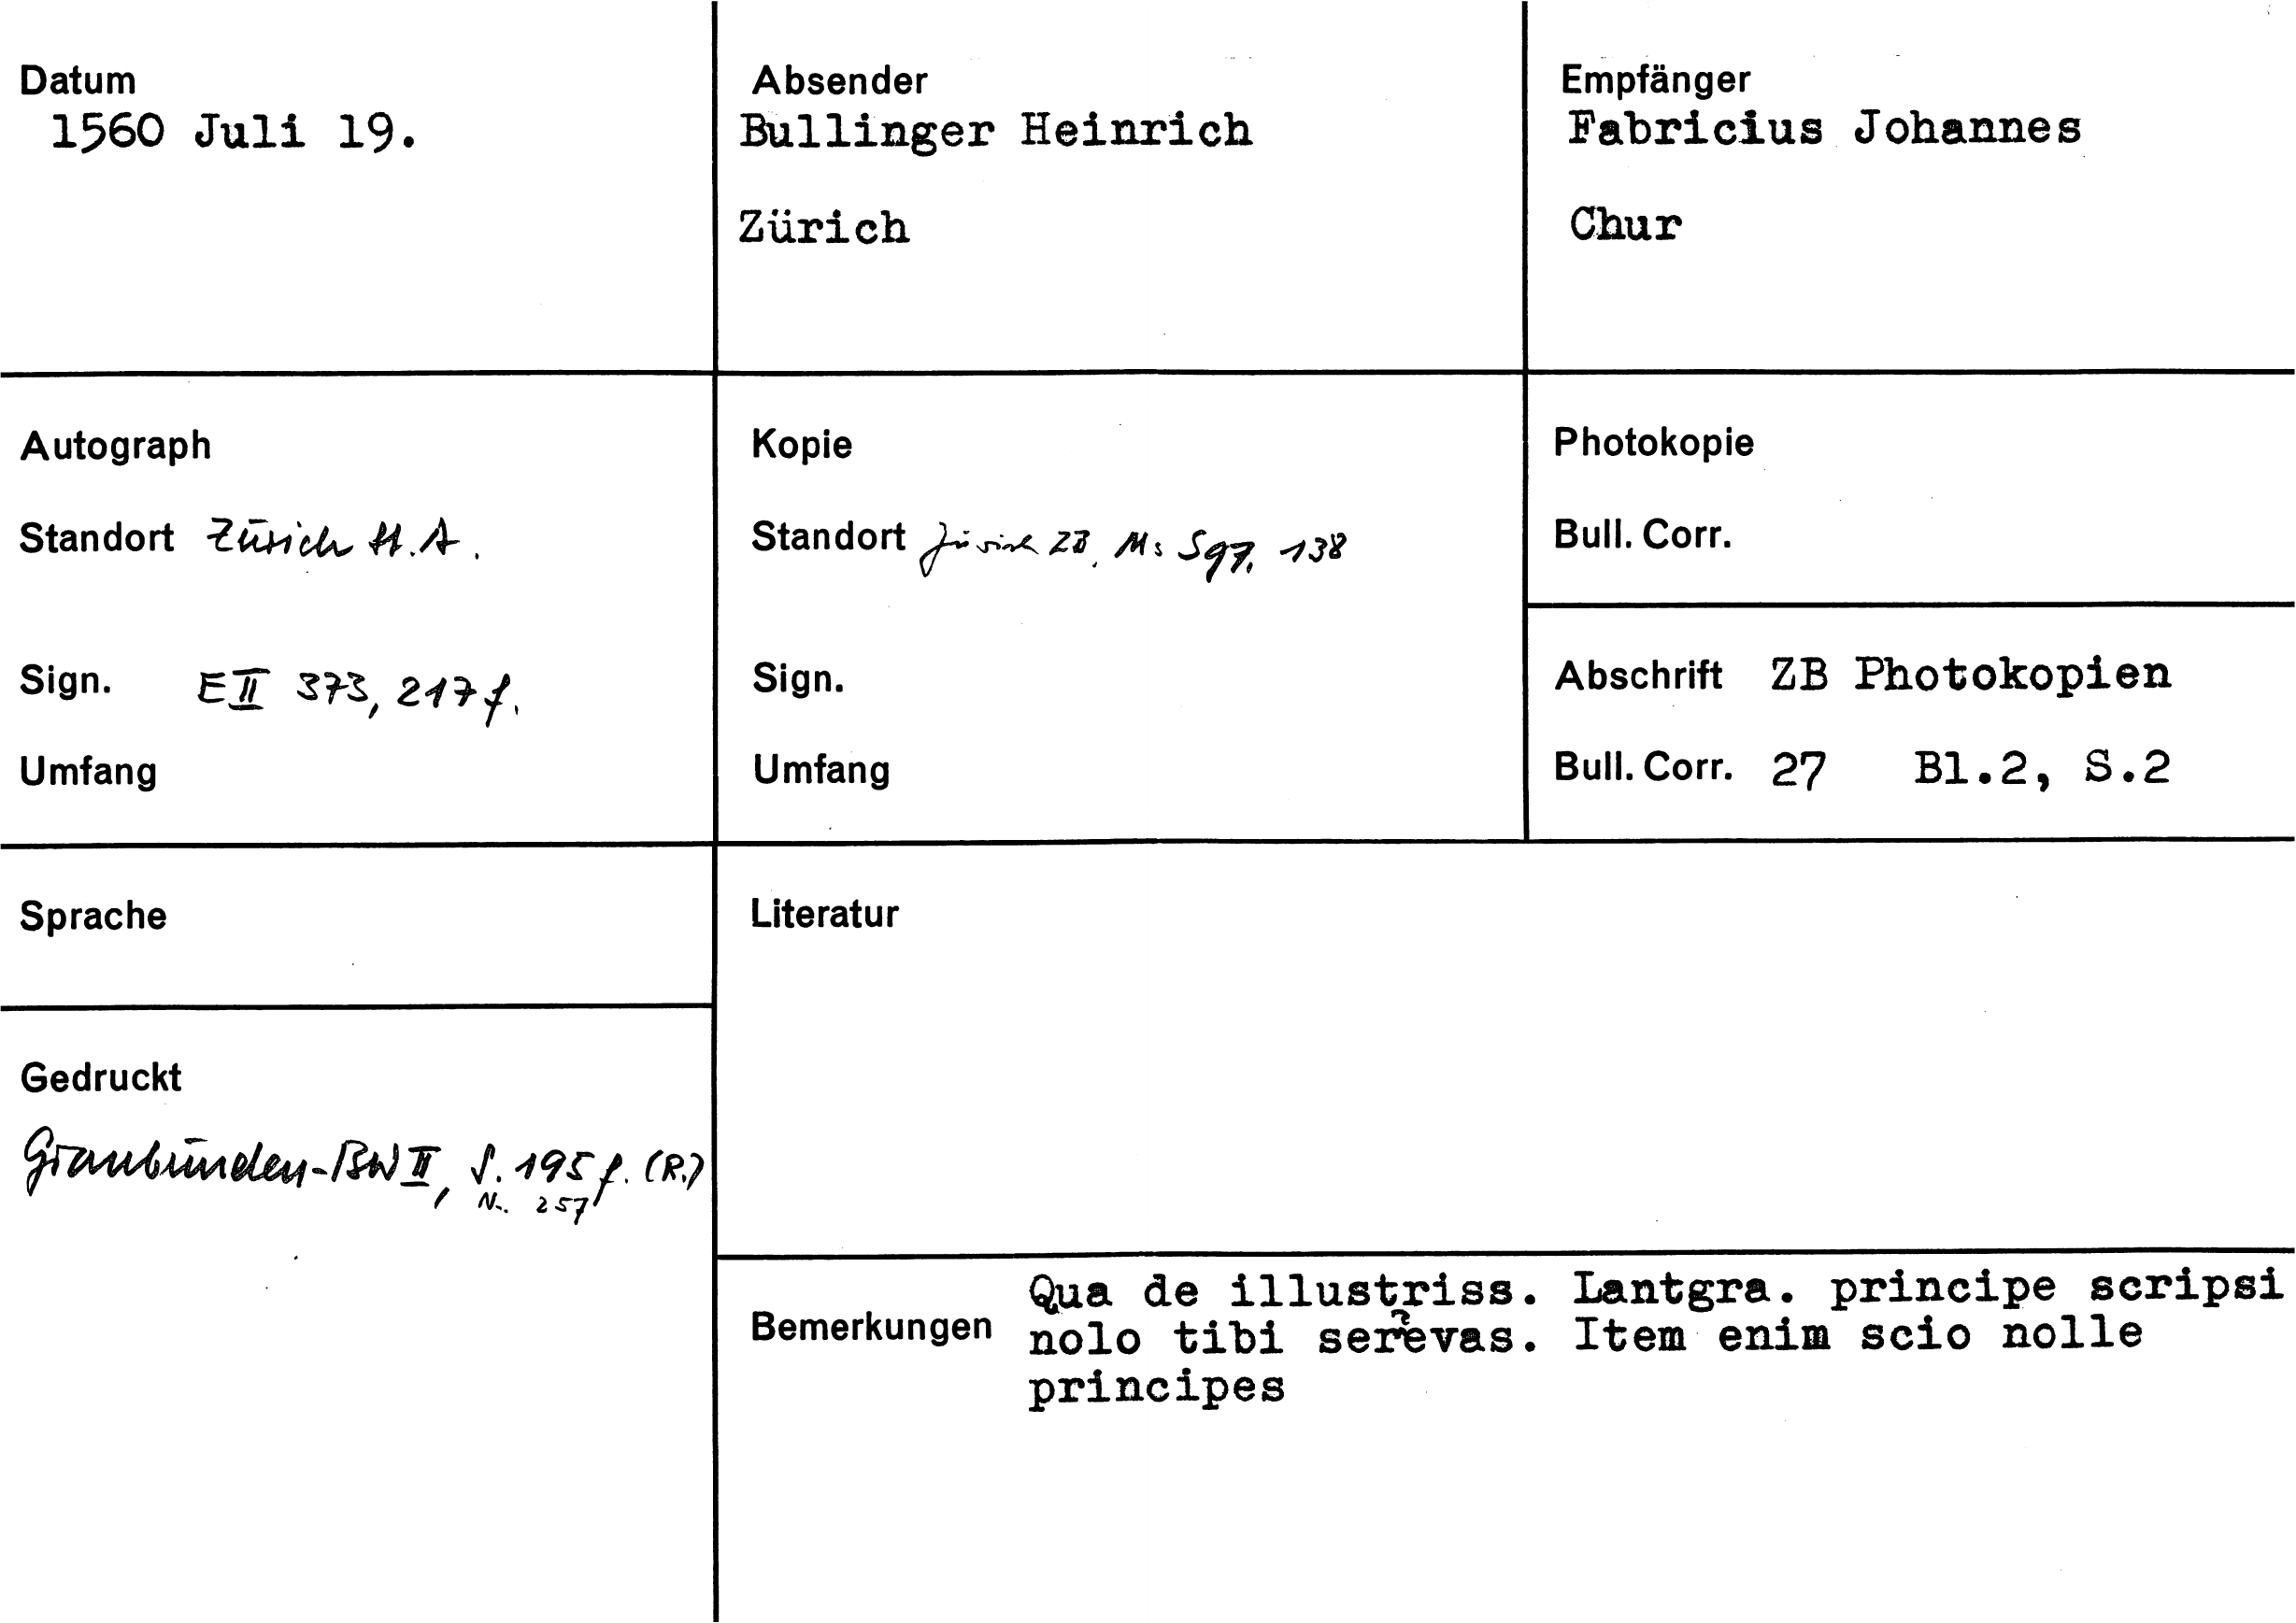 Datum
1560 Juli 19.
Absender
Bullinger Heinrich
Zürich
Empfänger
Fabricius Johannes
Chur
Autograph
Standort Zürich St.A.
Sign. E II 373, 217 f.
Umfang
Kopie
Standort Zürich ZB, Ms S 97, 138
Sign.
Umfang
Photokopie
Bull. Corr.
Abschrift ZB Photokopien
Bull. Corr. 27 Bl.2, S.2
Sprache
Gedruckt
Graubünden-BW II, S. 195 f. (R.)
Nr. 257
Literatur
Bemerkungen
Qua de illustriss. Lantgra. principe scripsi
nolo tibi serevas. Item enim scio nolle
principes